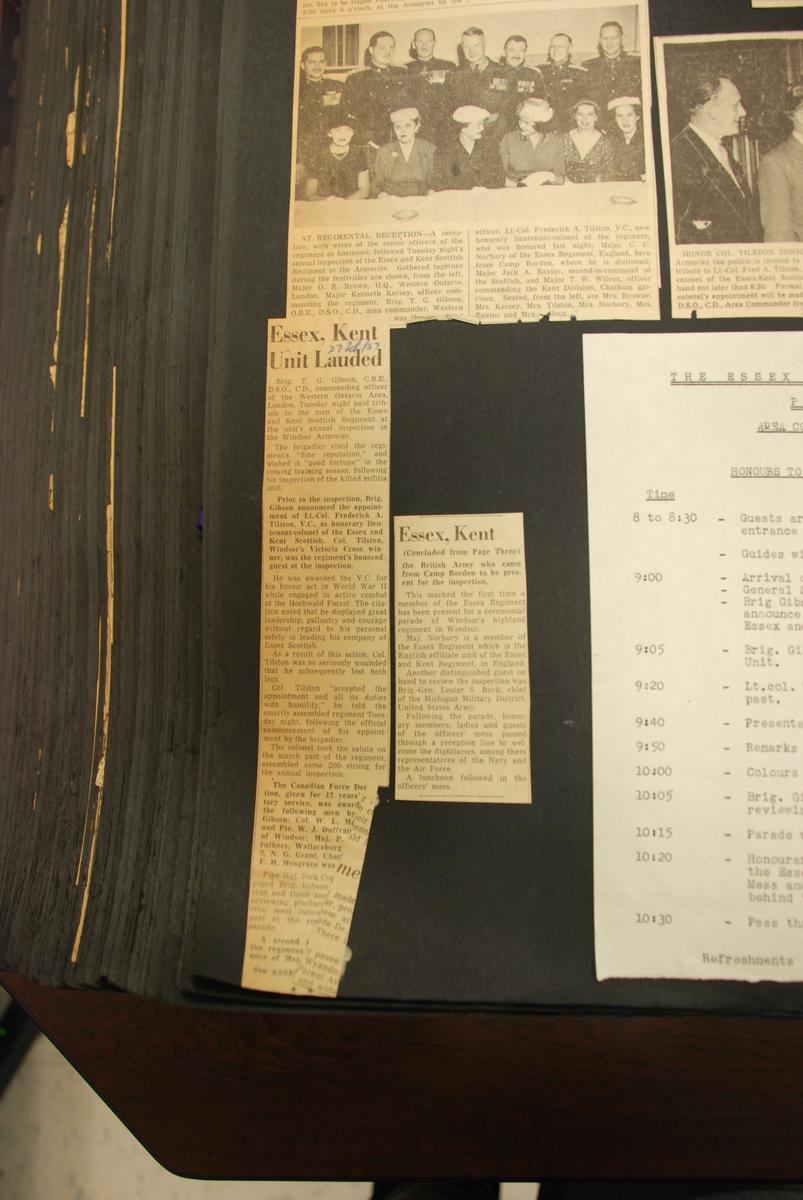 2:30 until 5 o'clock, at the Armories by the
AT REGIMENTAL RECEPTION—A recep-
tion, with wives of the senior officers of the
regiment as hostesses, followed Tuesday night's
annual inspection of the Essex and Kent Scottish
Regiment at the Armories. Gathered together
during the festivities are shown, from the left,
Major O. B. Brown, H.Q., Western Ontario,
London; Major Kenneth Kersey, officer com-
manding the regiment; Brig. T. G. Gibson,
O.B.E., D.S.O., C.D., area commander, Western
was
officer; Lt-Col. Frederick A. Tilston, V.C., new
honorary lieutenant-colonel of the regiment,
who was honored last night; Major C. C.
Norbury of the Essex Regiment, England, here
from Camp Borden, where he is stationed;
Major Jack A. Baxter, second-in-command of
the Scottish, and Major T. W. Wilcox, officer
commanding the Kent Division, Chatham gar-
rison. Seated, from the left, are Mrs. Browne,
Mrs. Kersey, Mrs. Tilston, Mrs. Norbury, Mrs.
Baxter and Mrs.
HONOR COL. TILSTON TONI
Armories the public is invited to
tribute to Lt-Col. Fred A. Tilston,
colonel of the Essex-Kent Scotti
hand not later than 8:30. Formal
colonel's appointment will be mad
D.S.O., C.D., Area Commander fro
Essex, Kent
Unit Lauded
Brig. T. G. Gibson, C.B.E.,
D.S.O., C.D., commanding officer
of the Western Ontario Area,
London, Tuesday night paid trib-
ute to the men of the Essex
and Kent Scottish Regiment at
the unit's annual inspection in
the Windsor Armories.
The brigadier cited the regi-
ment's "fine reputation," and
wished it "good fortune" in the
coming training season, following
his inspection of the kilted militia
unit.
Prior to the inspection, Brig.
Gibson announced the appoint-
ment of Lt.-Col. Frederick A.
Tilston, V.C., as honorary lieu-
tenant-colonel of the Essex and
Kent Scottish. Col. Tilston,
Windsor's Victoria Cross win-
ner, was the regiment's honored
guest at the inspection.
He was awarded the V.C. for
his heroic act in World War II
while engaged in active combat
at the Hochwald Forest. The cita-
tion noted that he displayed great
leadership, gallantry and courage
without regard to his personal
safety in leading his company of
Essex Scottish.
As a result of this action, Col.
Tilston was so seriously wounded
that he subsequently lost both
legs.
Col. Tilston "accepted the
appointment and all its duties
with humility," he told the
smartly assembled regiment Tues-
day night, following the official
announcement of his appoint-
ment by the brigadier.
The colonel took the salute on
the march past of the regiment,
assembled some 200-strong for
the annual inspection.
The Canadian Force Dec
tion, given for 12 years'
tary service, was award
the following men by
Gibson: Col. W. L. Mc
and Pte. W. J. Duffrai
of Windsor; Maj. P.
ruthers, Wallaceburg
N. G. Grant, Chat
E. H. Musgrave was
Pipe Maj. Jock Cop
piped Brig. Gibson,
ston and those
reviewing platfor
cers' mess follow
past at the
parade.
A second
the regiment
ance of Maj.
See ESSE
Essex, Kent
(Concluded from Page Three)
the British Army who came
from Camp Borden to be pres-
ent for the inspection.
This marked the first time a
member of the Essex Regiment
has been present for a ceremonial
parade of Windsor's highland
regiment in Windsor.
Maj. Norbury is a member of
the Essex Regiment which is the
English affiliate unit of the Essex
and Kent Regiment, in England.
Another distinguished guest on
hand to review the inspection was
Brig.-Gen. Lester S. Bork, chief
of the Michigan Military District,
United States Army.
Following the parade, honor-
ary members, ladies and guests
of the officers' mess passed
through a reception line to wel-
come the dignitaries, among them
representatives of the Navy and
the Air Force.
A luncheon followed in the
officers' mess.
THE ESSEX
P
AREA CO
HONOURS TO
Time
8 to 8:30 - Guests ar
entrance
- Guides wi
9:00 - Arrival o
- General S
- Brig Gibs
announce
Essex and
9:05 - Brig. Gi
Unit.
9:20 - Lt.col.
past.
9:40 - Presenta
9:50 - Remarks
10:00 - Colours
10:05 - Brig. Gi
reviewin
10:15 - Parade
10:20 - Honoura
the Esse
Mess and
behind
10:30 - Pass th
Refreshments